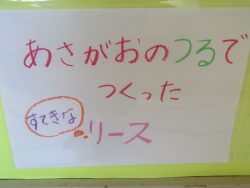 あさがおのつるで
つくった
すてきな
リース